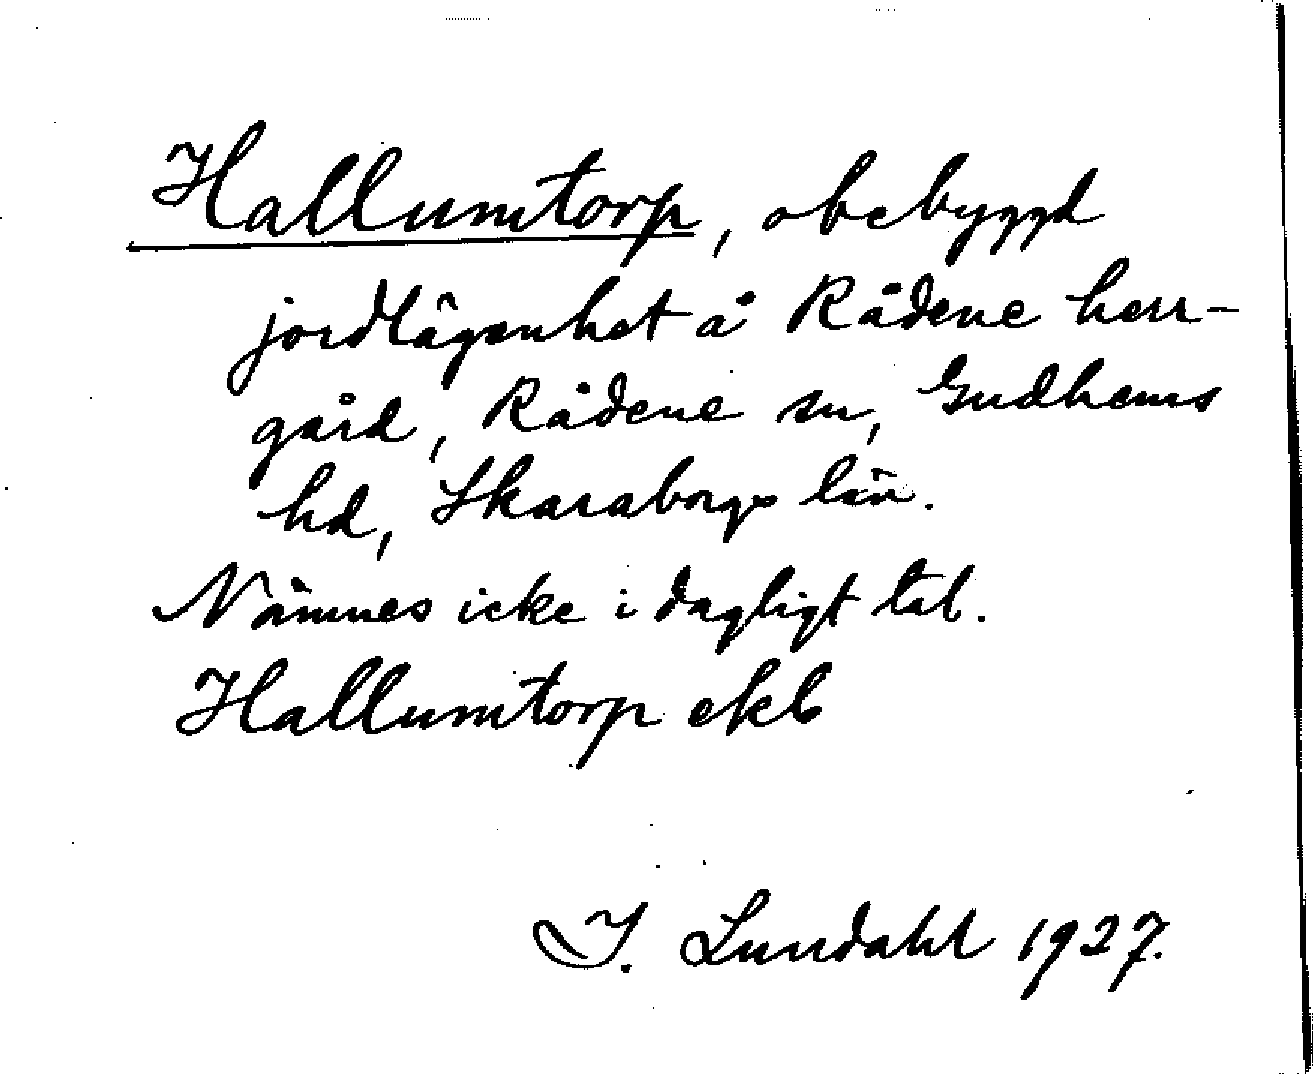 Hallumtorp, obebyggd
jordlägenhet å Rådene herr-
gård, Rådene sn, Gudhems
hd, Skaraborgs län.
Nämnes icke i dagligt tal.
Hallumtorp ekb
I. Lundahl 1927.